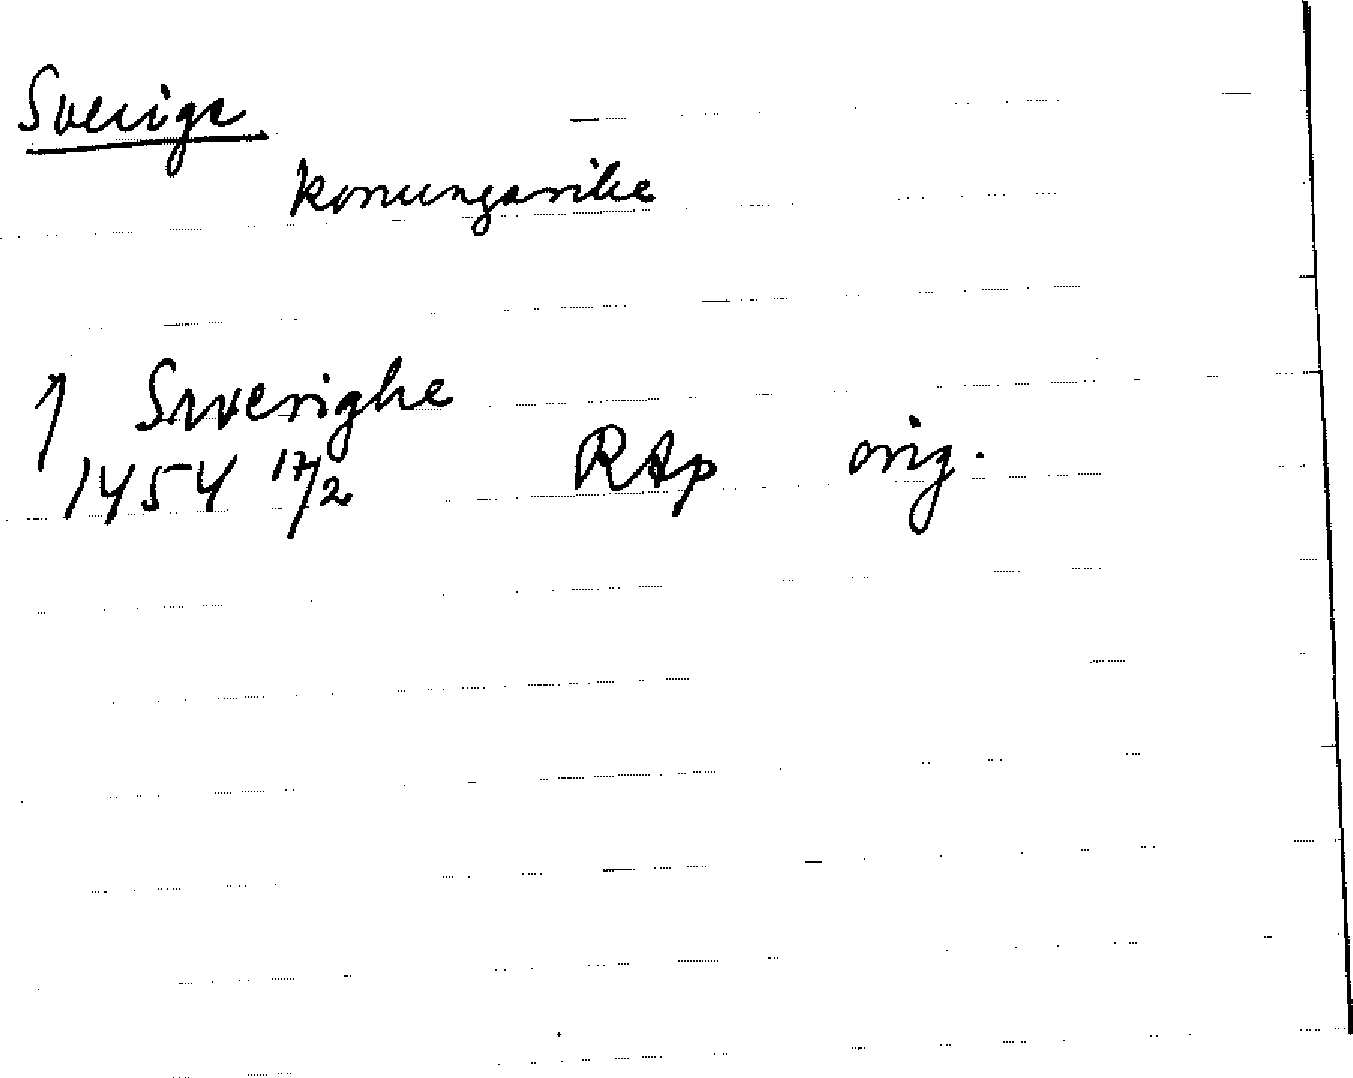 Sverige
konungarike
↑ Swerighe
1454 17/2 RAp orig.